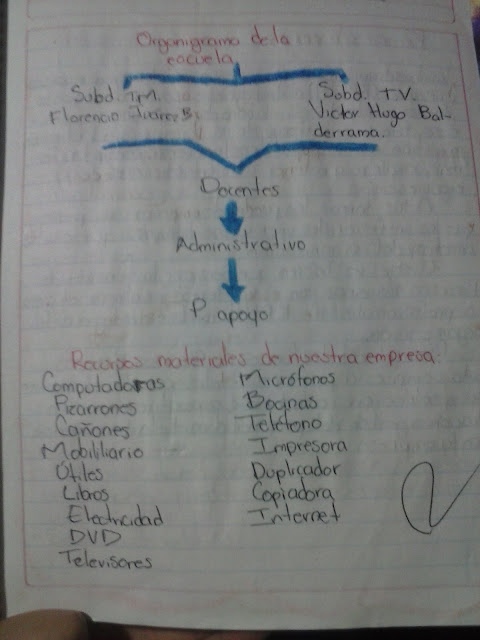 Organigrama de la
escuela
Subd. T.M.
Florencio Juarez B.
Subd. T.V.
Victor Hugo Bal-
derrama.
Docentes
Administrativo
P. apoyo
Recursos materiales de nuestra empresa:
Computadoras
Pizarrones
Cañones
Mobiliario
Útiles
Libros
Electricidad
DVD
Televisores
Micrófonos
Bocinas
Teléfono
Impresora
Duplicador
Copiadora
Internet